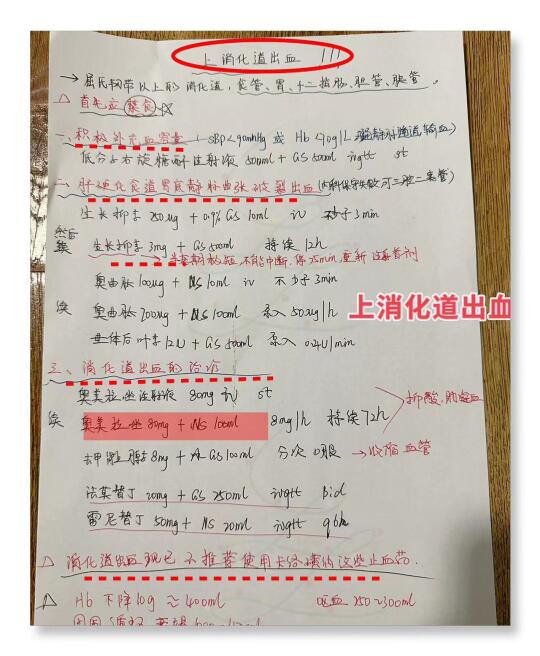 上消化道出血 !!!
→ 屈氏韧带以上的消化道,食管、胃、十二指肠、胆管、胰管。
△ 首先应禁食
一、积极补充血容量 (SBP<90mmHg 或 Hb<70g/L 建静脉通道输血)
低分子右旋糖酐注射液 500ml + GS 500ml ivgtt st
二、肝硬化食道胃底静脉曲张破裂出血 (内科保守失败可三腔二囊管)
生长抑素 250ug + 0.9% GS 10ml iv 不少于 3min
然后
续 生长抑素 3mg + GS 500ml 持续 12h
→ 半衰期极短,不能中断,停 5min,重新注首剂
奥曲肽 100ug + NS 10ml iv 不少于 3min
续 奥曲肽 200ug + NS 500ml 泵入 50ug/h
垂体后叶素 12U + GS 500ml 泵入 0.4U/min
上消化道出血
三、消化道出血的治疗
奥美拉唑注射液 80mg iv st
续 奥美拉唑 80mg + NS 100ml 8mg/h 持续 72h
抑酸,助凝血
去甲肾上腺素 8mg + GS 100ml 分次口服 → 收缩血管
法莫替丁 20mg + GS 250ml ivgtt bid
雷尼替丁 50mg + NS 20ml ivgtt q6h
△ 消化道出血现已不推荐使用卡络磺钠这些止血药.
△ Hb 下降 10g ≈ 400ml 呕血 250~300ml